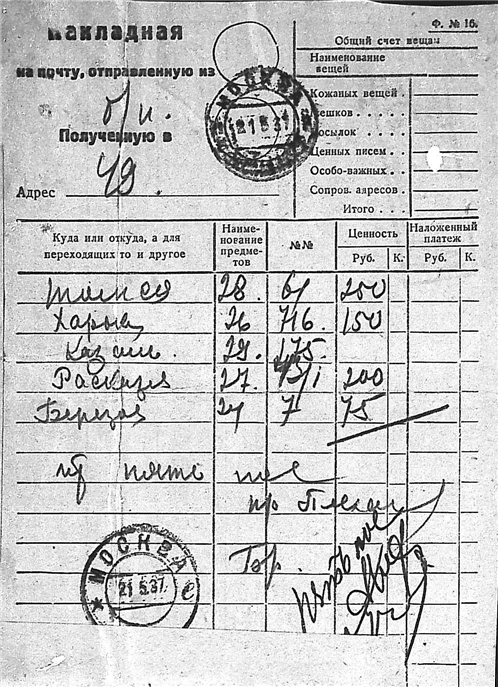 Накладная
Ф. № 16.
на почту, отправленную из
б/н.
Полученную в
49
Адрес
МОСКВА
21 5 37
Общий счет вещам
Наименование вещей
Кожаных вещей .
Мешков . . . .
Посылок . . .
Ценных писем . .
Особо-важных . .
Сопров. адресов .
Итого . . .
Куда или откуда, а для переходящих то и другое
Наименование предметов
№№
Ценность
Наложенный платеж
Руб. К. Руб. К.
28. 61 250
Харьк 26 716. 150
Казань. 29. 175.
Расказ 27. 200
Березов 24 7 75
пять
МОСКВА
21 5.37